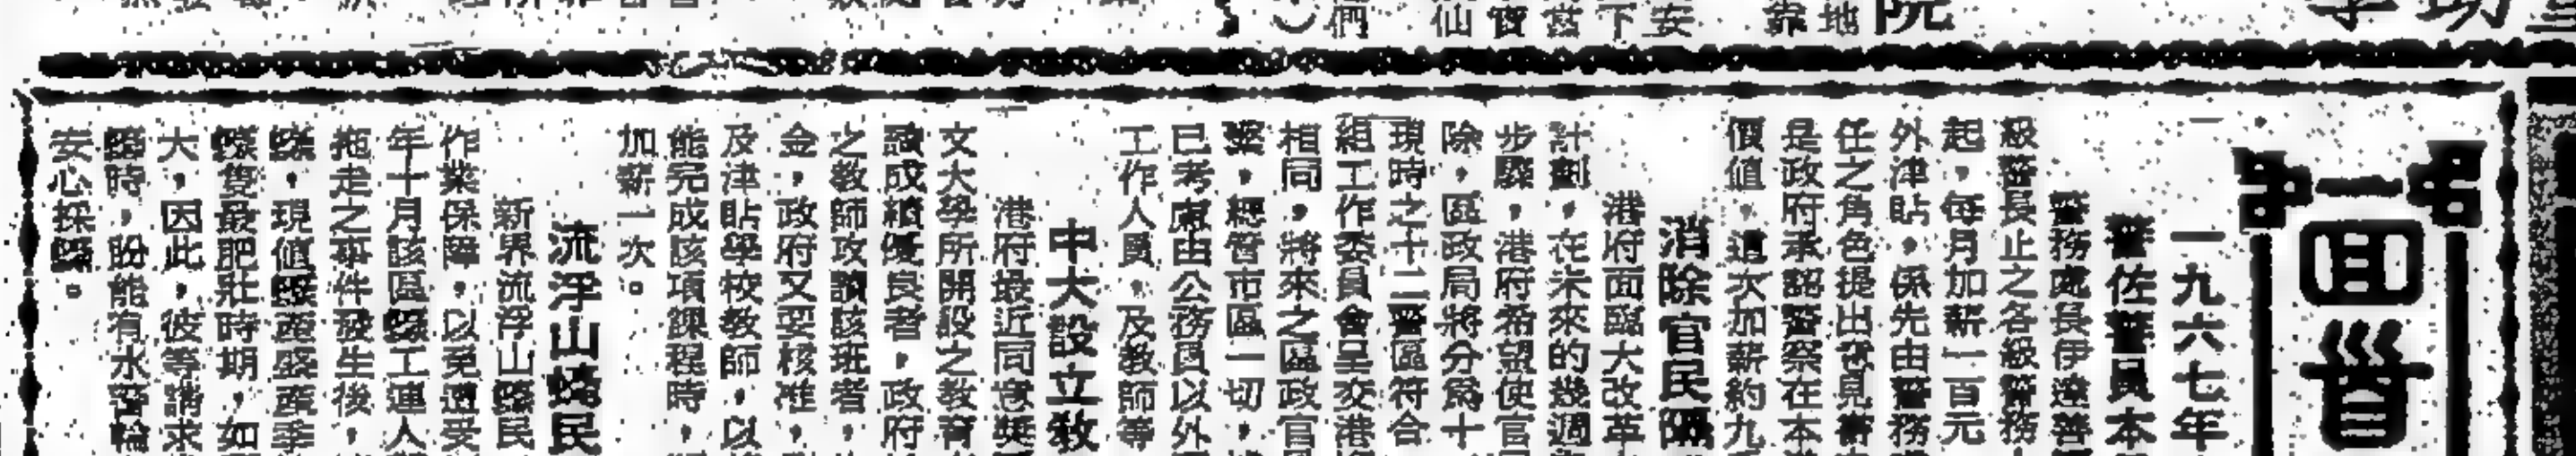 回首
一九六七年
警佐警員本
警務處長伊達善
級警長止之各級警務
起，每月加薪一百元
外津貼，係先由警務
任之角色提出意見書
是政府承認警察在本
價值，這次加薪約九
消除官民隔
港府面臨大改革
計劃，在未來的幾週
步驟，港府希望使官
除，區政局將分為十
現時之十二警區符合
組工作委員會呈交港
相同，將來之區政官
繫，經管市區一切，
已考慮由公務員以外
工作人員，及教師等
中大設立教
港府最近同意
文大學所開設之教育
成績優良者，政府
之教師攻讀該班者，
金，政府又要核准，
及津貼學校教師，以
能完成該項課程時，
加薪一次。
流浮山蠔民
新界流浮山蠔民
作業保障，以免遭受
年十月該區蠔工連人
拖走之事件發生後，
蠔，現值蠔產盛產季
蠔隻最肥壯時期，如
大，因此，彼等請求
時，盼能有水警輪
安心採蠔。
院
地
靠
安
下
仙
們